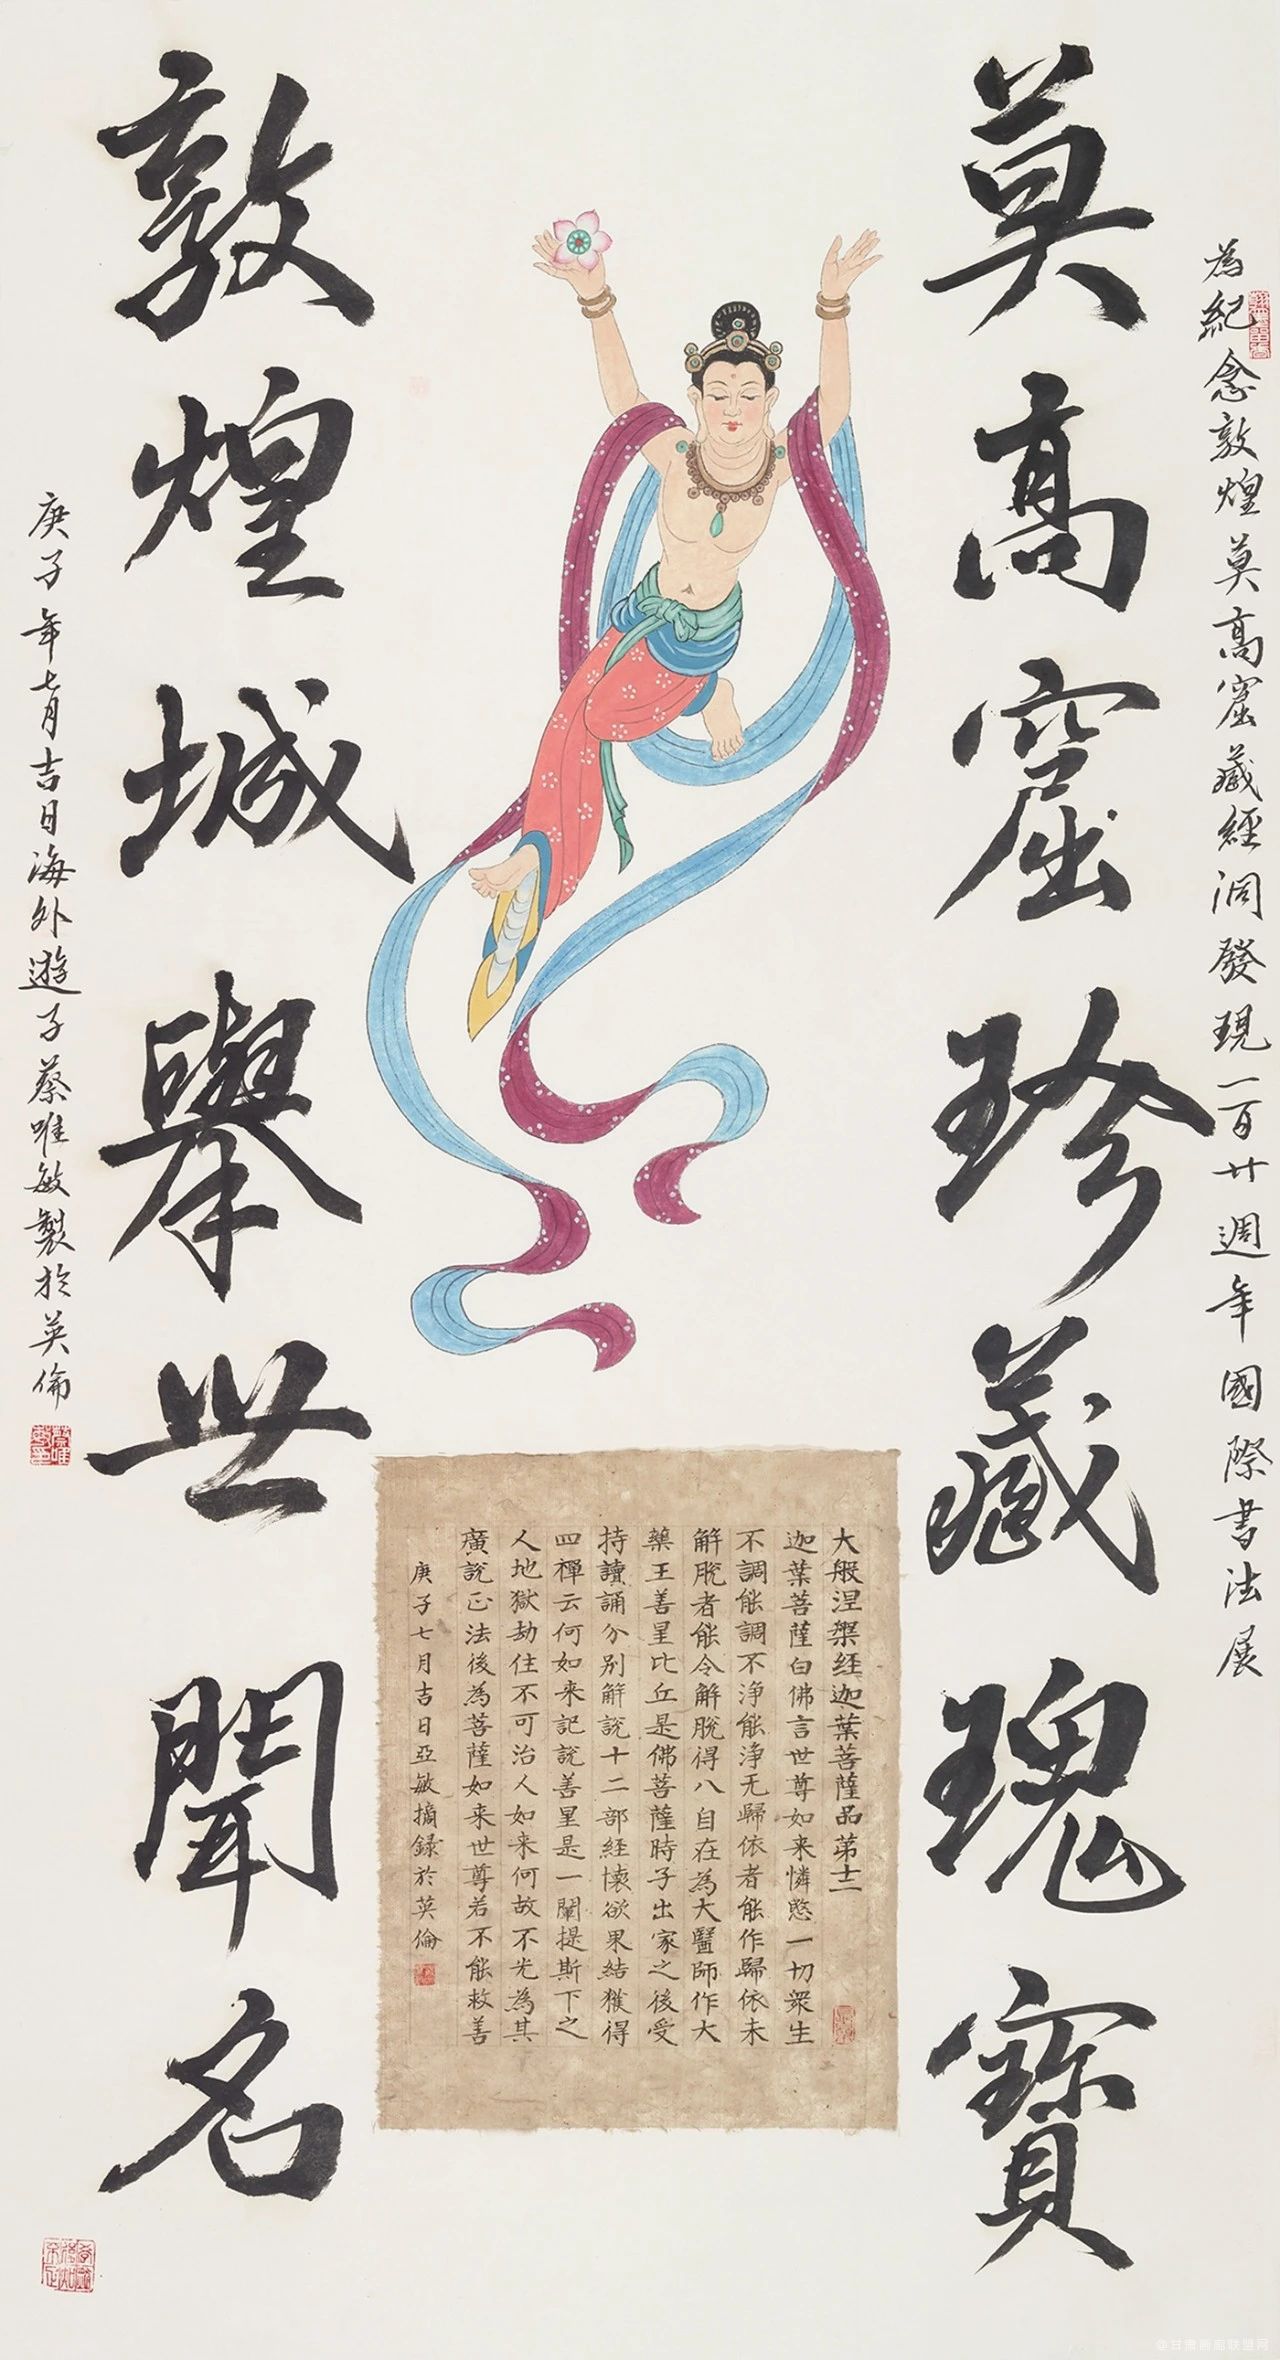 為紀念敦煌莫高窟藏經洞發現一百廿週年國際書法展
莫高窟珍藏瑰寶
敦煌城舉世聞名
庚子年七月吉日海外遊子蔡唯敏製於英倫
大般涅槃经迦葉菩薩品第十二
迦葉菩薩白佛言世尊如来憐愍一切衆生
不調能調不淨能淨无歸依者能作歸依未
解脫者能令解脫得八自在為大醫師作大
藥王善星比丘是佛菩薩時子出家之後受
持讀誦分別解說十二部经懷欲界結獲得
四禪云何如来記說善星是一闡提斯下之
人地獄劫住不可治人如来何故不先為其
廣說正法後為菩薩如来世尊若不能救善
庚子七月吉日亞敏摘録於英倫
@甘肃画廊联盟网